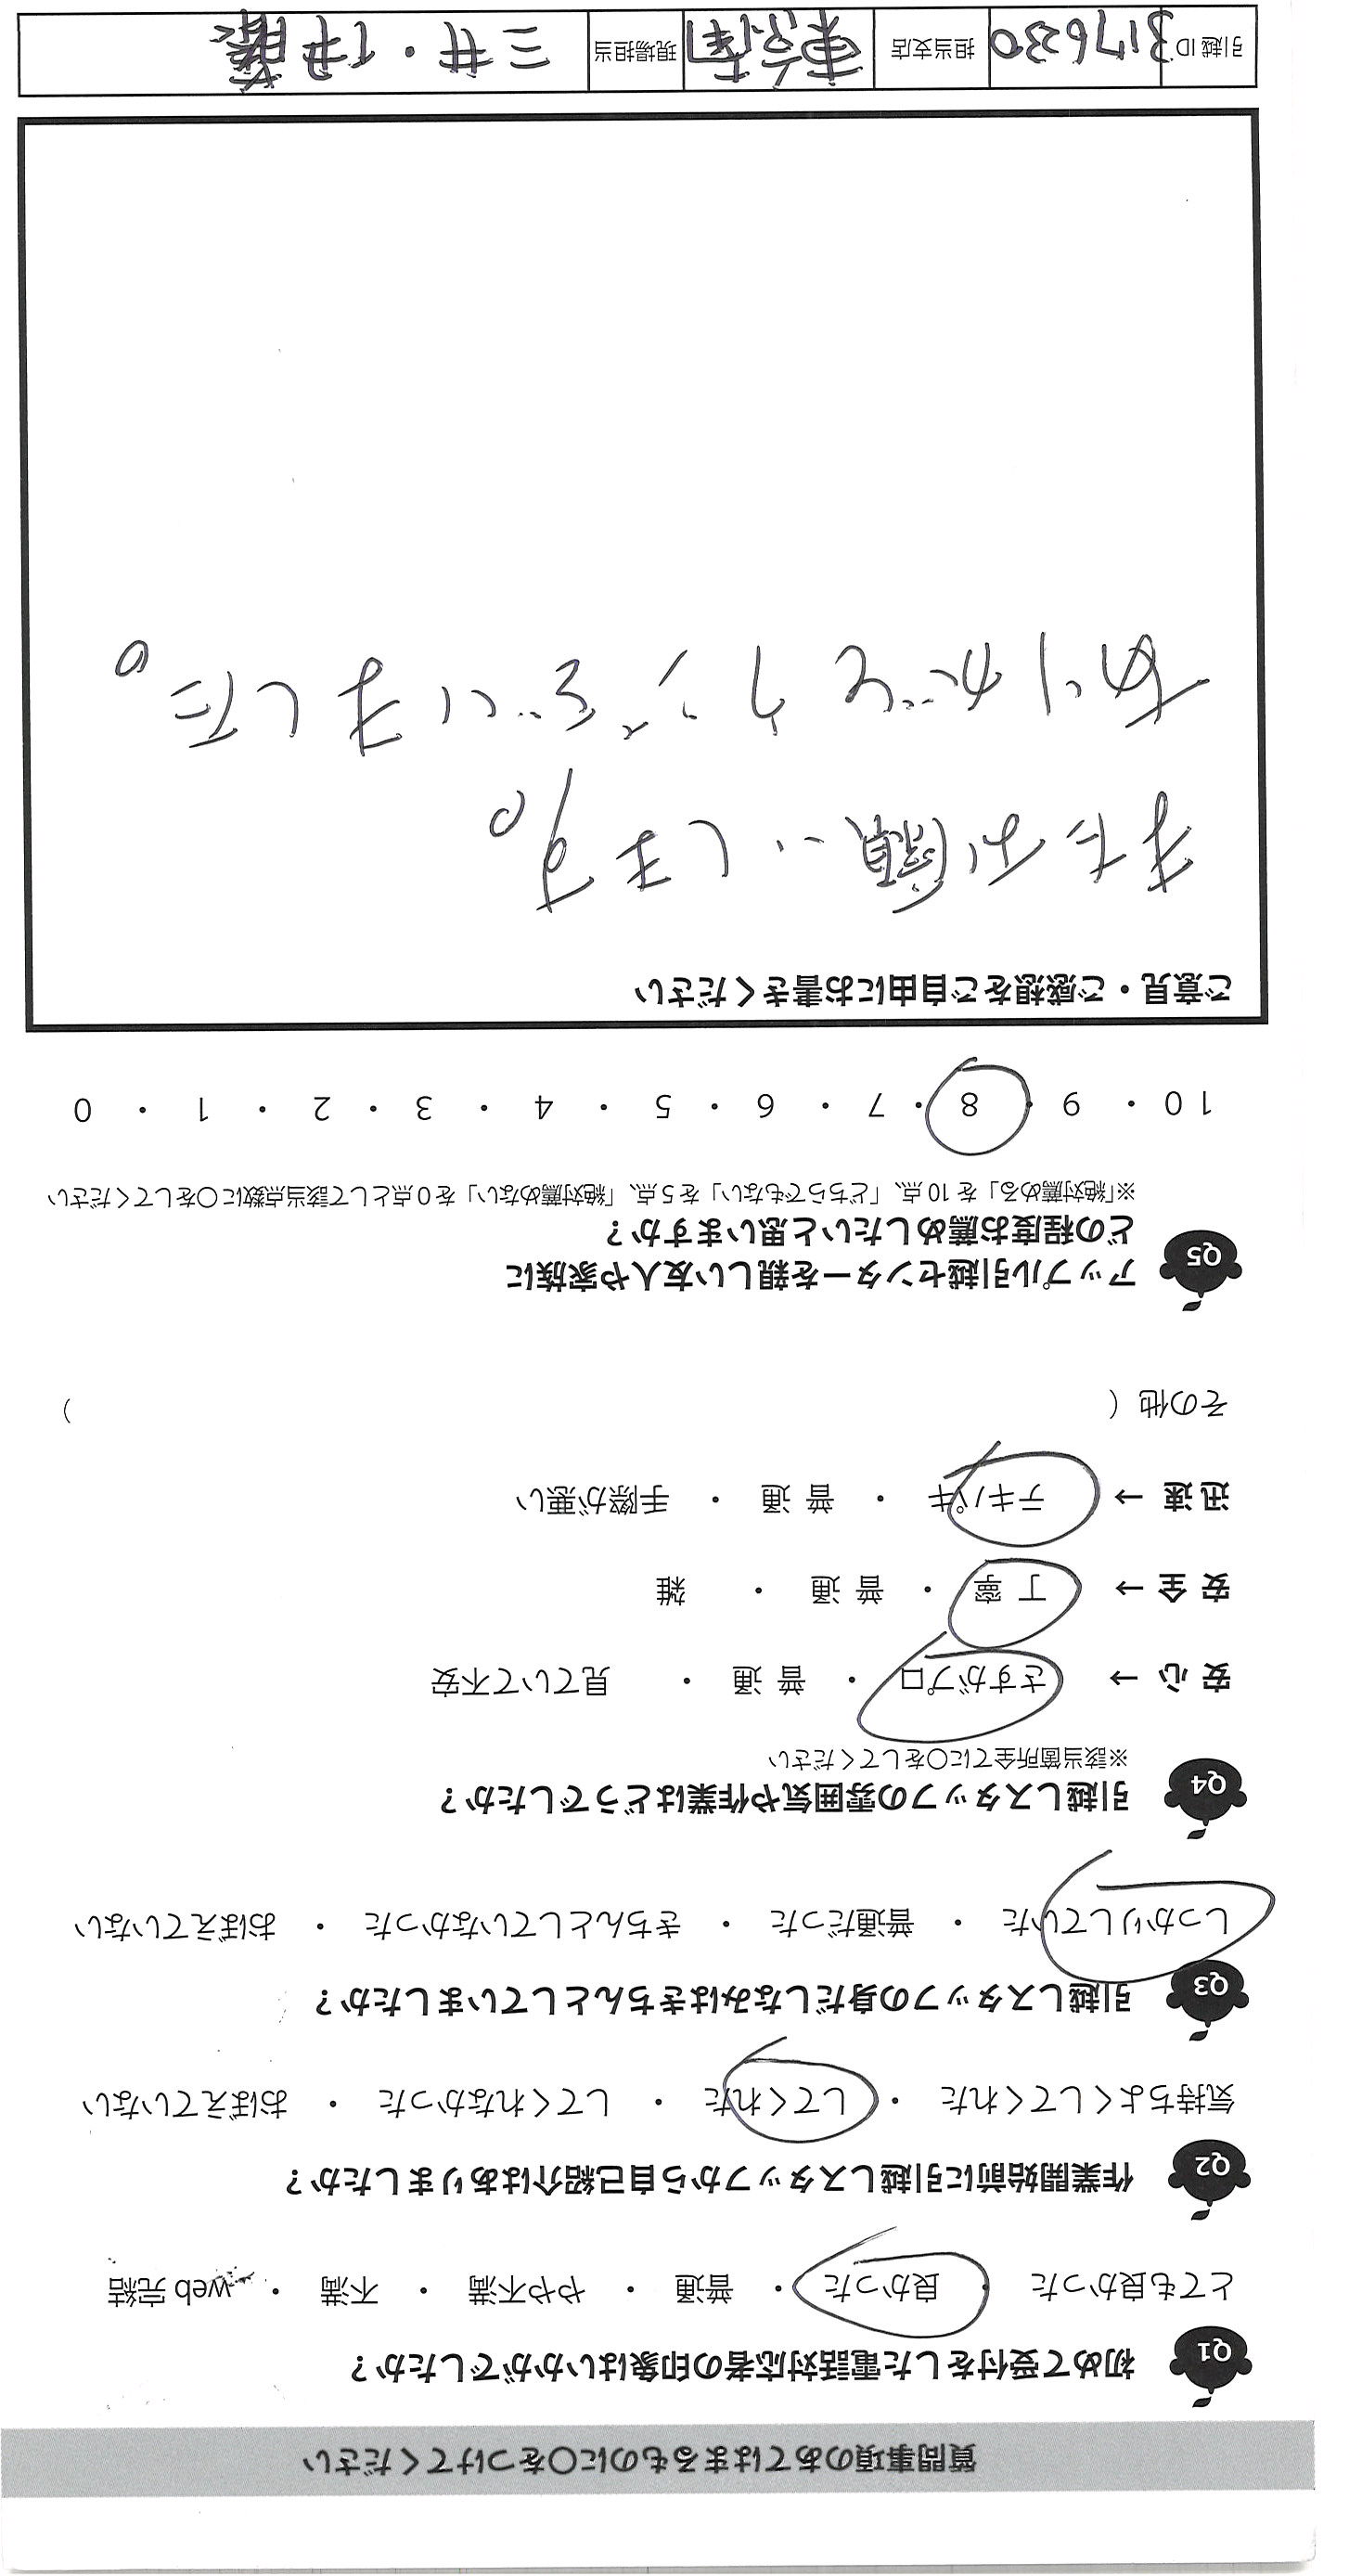 質問事項のあてはまるものに〇をつけてください
Q1 初めて受付をした電話対応者の印象はいかがでしたか？
とても良かった ・ 良かった ・ 普通 ・ やや不満 ・ 不満 ・ web 完結
Q2 作業開始前に引越しスタッフから自己紹介はありましたか？
気持ちよくしてくれた ・ してくれた ・ してくれなかった ・ おぼえていない
Q3 引越しスタッフの身だしなみはきちんとしていましたか？
しっかりしていた ・ 普通だった ・ きちんとしていなかった ・ おぼえていない
Q4 引越しスタッフの雰囲気や作業はどうでしたか？
※該当箇所全てに〇をしてください
安心 → さすがプロ ・ 普通 ・ 見ていて不安
安全 → 丁寧 ・ 普通 ・ 雑
迅速 → テキパキ ・ 普通 ・ 手際が悪い
その他（ ）
Q5 アップル引越センターを親しい友人や家族に
どの程度お薦めしたいと思いますか？
※「絶対薦める」を 10 点、「どちらでもない」を 5 点、「絶対薦めない」を 0 点として該当点数に〇をしてください
10 ・ 9 ・ 8 ・ 7 ・ 6 ・ 5 ・ 4 ・ 3 ・ 2 ・ 1 ・ 0
ご意見・ご感想をご自由にお書きください
またお願いします。
ありがとうございました。
引越 ID 3176230 担当支店 東京南 現場担当 三井・伊藤